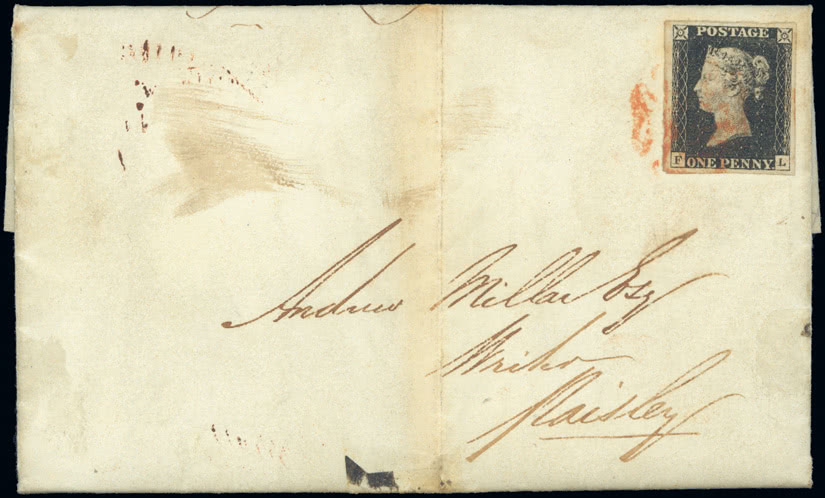 POSTAGE
F ONE PENNY L
Andrew Millar Esq
Writer
Paisley